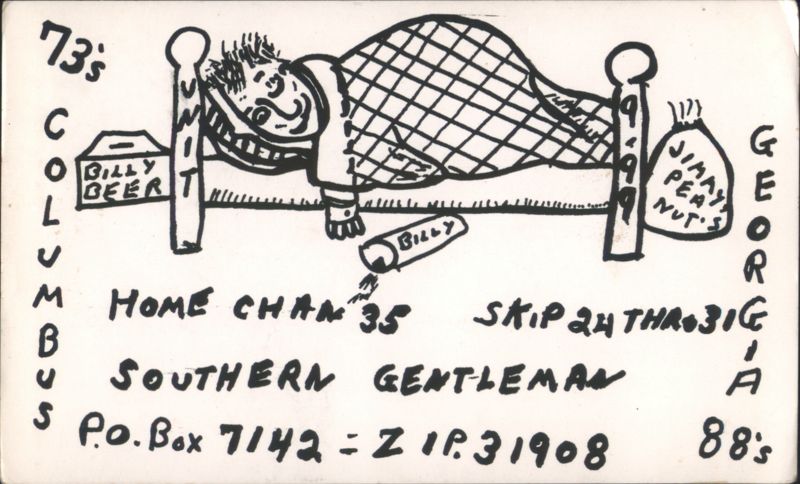 73's
COLUMBUS
GEORGIA
UNIT
9-99
BILLY
BEER
JIMMY
PEA
NUT'S
BILLY
HOME CHAN 35 SKIP 24 THRO 31
SOUTHERN GENTLEMAN
P.O. Box 7142 = ZIP. 31908
88's